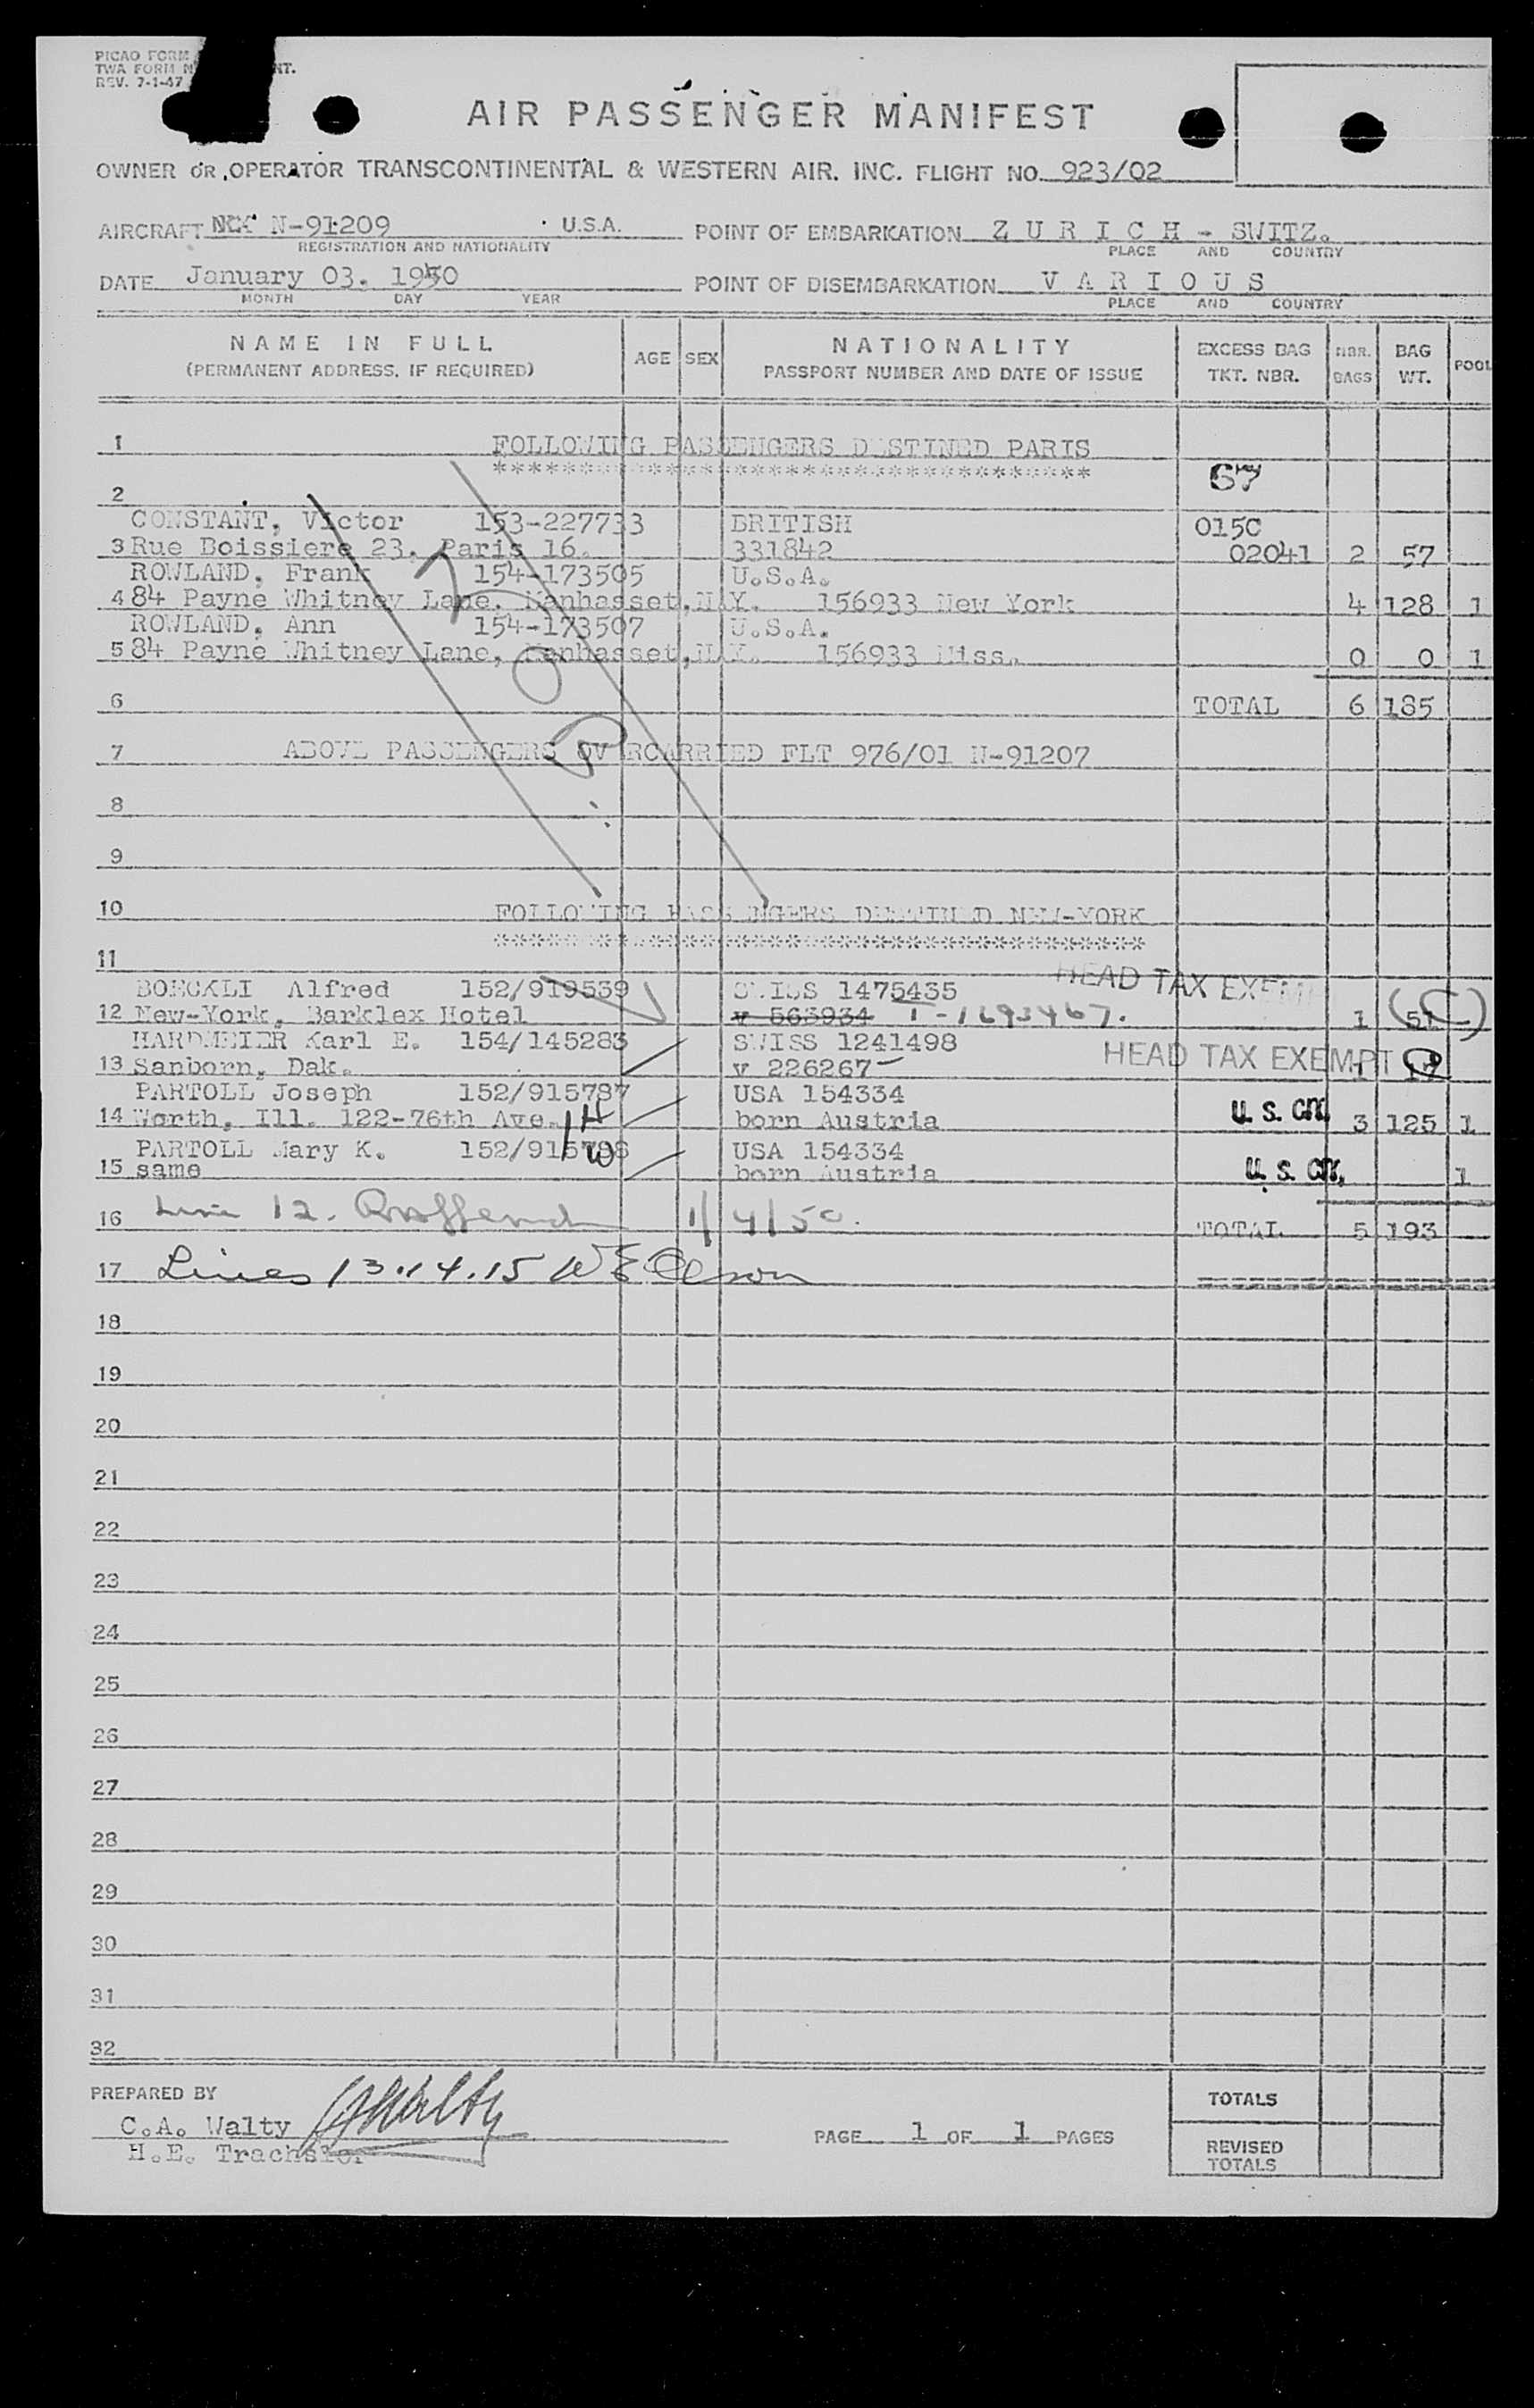 PICAO FORM
TWA FORM NT.
REV. 7-1-47
AIR PASSENGER MANIFEST
OWNER OR OPERATOR TRANSCONTINENTAL & WESTERN AIR. INC. FLIGHT NO. 923/02
AIRCRAFT N-91209 U.S.A. POINT OF EMBARKATION Z U R I C H - SWITZ.
REGISTRATION AND NATIONALITY PLACE AND COUNTRY
DATE January 03. 1950 POINT OF DISEMBARKATION V A R I O U S
MONTH DAY YEAR PLACE AND COUNTRY
NAME IN FULL AGE SEX NATIONALITY EXCESS BAG NBR. BAG POOL
(PERMANENT ADDRESS, IF REQUIRED) PASSPORT NUMBER AND DATE OF ISSUE TKT. NBR. BAGS WT.
1 FOLLOWING PASSENGERS DESTINED PARIS
**********************************
67
2
CONSTANT, Victor 153-227733 BRITISH 015C
3 Rue Boissiere 23. Paris 16. 331842 02041 2 57
ROWLAND, Frank 154-173505 U.S.A.
4 84 Payne Whitney Lane. Manhasset,N.Y. 156933 New York 4 128 1
ROWLAND, Ann 154-173507 U.S.A.
5 84 Payne Whitney Lane, Manhasset,N.Y. 156933 Miss. 0 0 1
6 TOTAL 6 185
7 ABOVE PASSENGERS OVERCARRIED FLT 976/01 N-91207
8
9
10 FOLLOWING PASSENGERS DESTINED NEW-YORK
*************************************
11
HEAD TAX EXEMPT
BOECKLI Alfred 152/919539 SWISS 1475435
12 New-York, Barklex Hotel v 563934 T-1693467. 1 51
HARDMEIER Karl E. 154/145283 SWISS 1241498
13 Sanborn, Dak. v 226267 HEAD TAX EXEMPT 1 17
PARTOLL Joseph 152/915787 USA 154334
14 Worth, Ill. 122-76th Ave. H born Austria U. S. CIT. 3 125 1
PARTOLL Mary K. 152/915788 USA 154334
15 same W born Austria U. S. CIT. 1
16 Line 12. 1/4/50. TOTAL 5 193
17 Lines 13.14.15 W E Olson
18
19
20
21
22
23
24
25
26
27
28
29
30
31
32
PREPARED BY TOTALS
C.A. Walty PAGE 1 OF 1 PAGES
H.E. REVISED
TOTALS